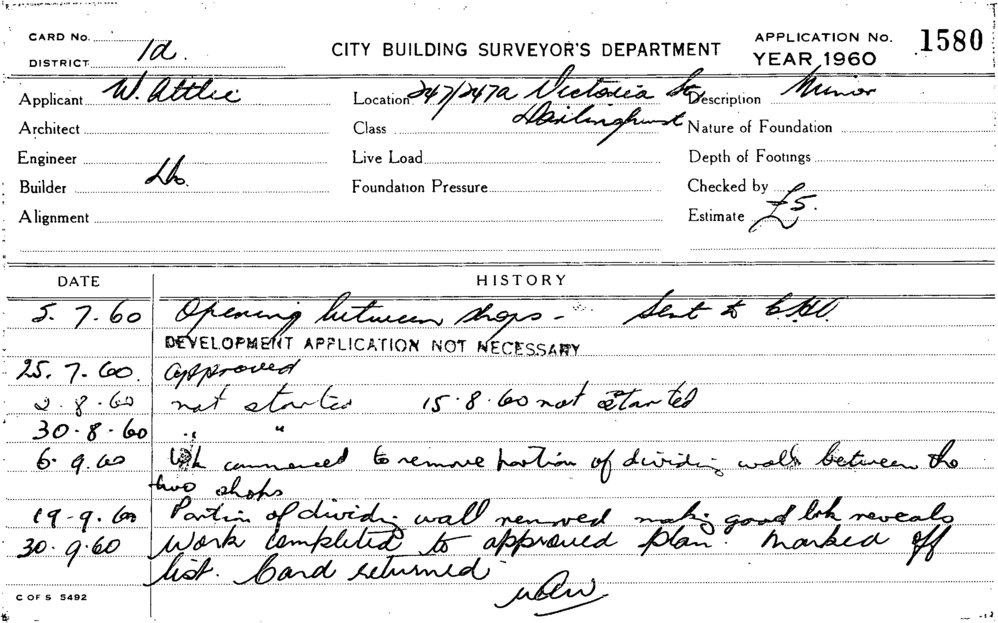 CARD No. CITY BUILDING SURVEYOR'S DEPARTMENT APPLICATION No. 1580
DISTRICT 1d. YEAR 1960
Applicant W. Attlee Location 247/247a Victoria St Description Minor
Architect Class Darlinghurst Nature of Foundation
Engineer Live Load Depth of Footings
Builder Do. Foundation Pressure Checked by
Alignment Estimate £5.
DATE HISTORY
5. 7. 60 Opening between shops - Sent to C.H.O.
DEVELOPMENT APPLICATION NOT NECESSARY
25. 7. 60. approved
2. 8. 60 not started 15. 8. 60 not started
30. 8. 60 " "
6. 9. 60 Wk commenced to remove portion of dividing walls between the
two shops
19. 9. 60 Portion of dividing wall removed making good bk reveals
30. 9. 60 Work completed to approved plan. Marked off
list. Card returned
C OF S 5492